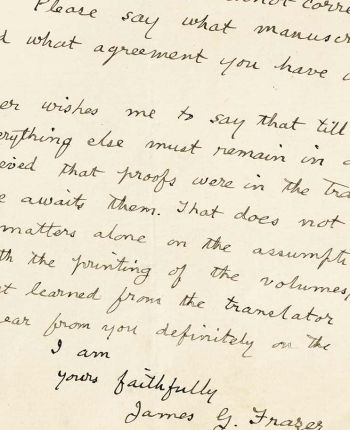 not corre
Please say what manuscr
d what agreement you have
er wishes me to say that till
erything else must remain in a
eved that proofs were in the Tra
e awaits them. That does not
matters alone on the assumpti
th the printing of the volumes,
t learned from the translator
ear from you definitely on the
I am
yours faithfully
James G. Frazer